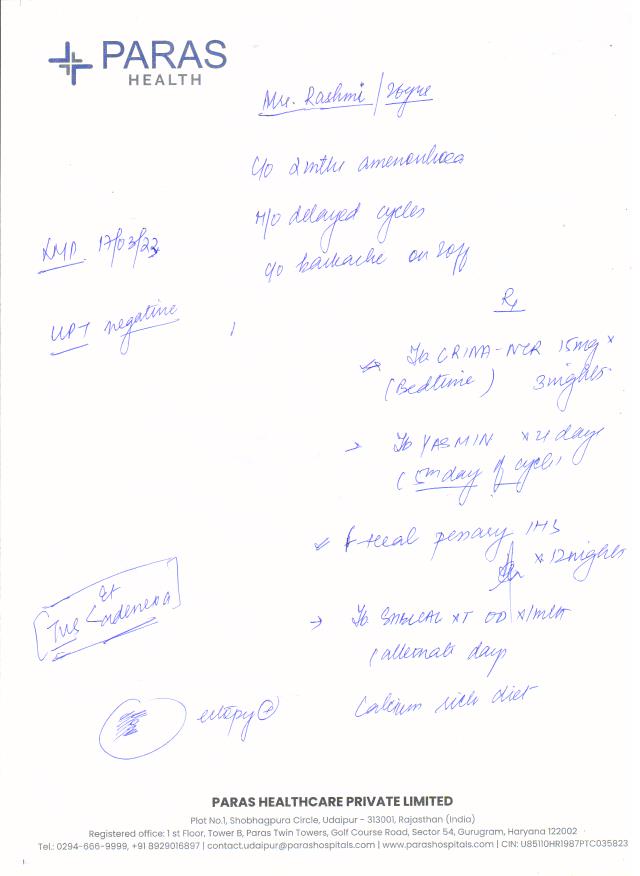 PARAS
HEALTH
Mrs. Rashmi / 26yrs
C/o 2mths amenorrhoea
H/o delayed cycles
LMP. 17/03/23
C/o backache on & off
Rx
UPT negative
Tb CRINA-NCR 15mg x
(Bedtime) 3 nights
→ Tb YASMIN x 21 days
(5th day of cycle)
pessary 1HS
x 12 nights
TVS
→ Tb x 1/mth
(alternate day
Calcium rich diet
ectopy ⊕
PARAS HEALTHCARE PRIVATE LIMITED
Plot No.1, Shobhagpura Circle, Udaipur - 313001, Rajasthan (India)
Registered office: 1 st Floor, Tower B, Paras Twin Towers, Golf Course Road, Sector 54, Gurugram, Haryana 122002
Tel.: 0294-666-9999, +91 8929016897 | contact.udaipur@parashospitals.com | www.parashospitals.com | CIN: U85110HR1987PTC035823